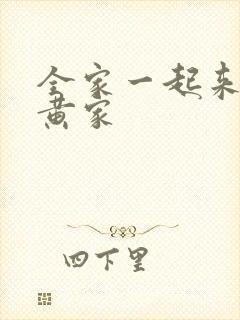 全家一起来
黄家
四下里